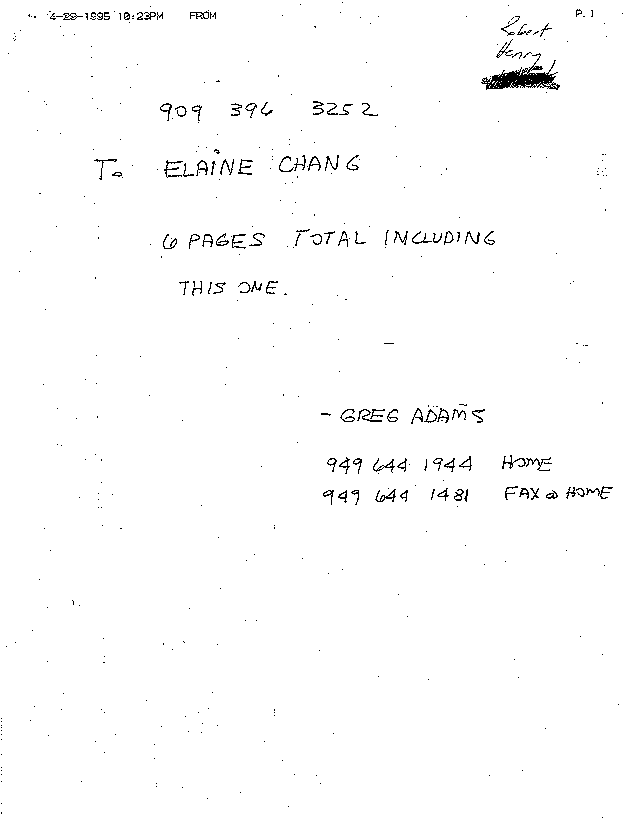 4-29-1995 10:23PM FROM P.1
Robert
Henry
909 396 3252
To ELAINE CHANG
6 PAGES TOTAL INCLUDING
THIS ONE.
- GREG ADAMS
949 644 1944 HOME
949 644 1481 FAX @ HOME